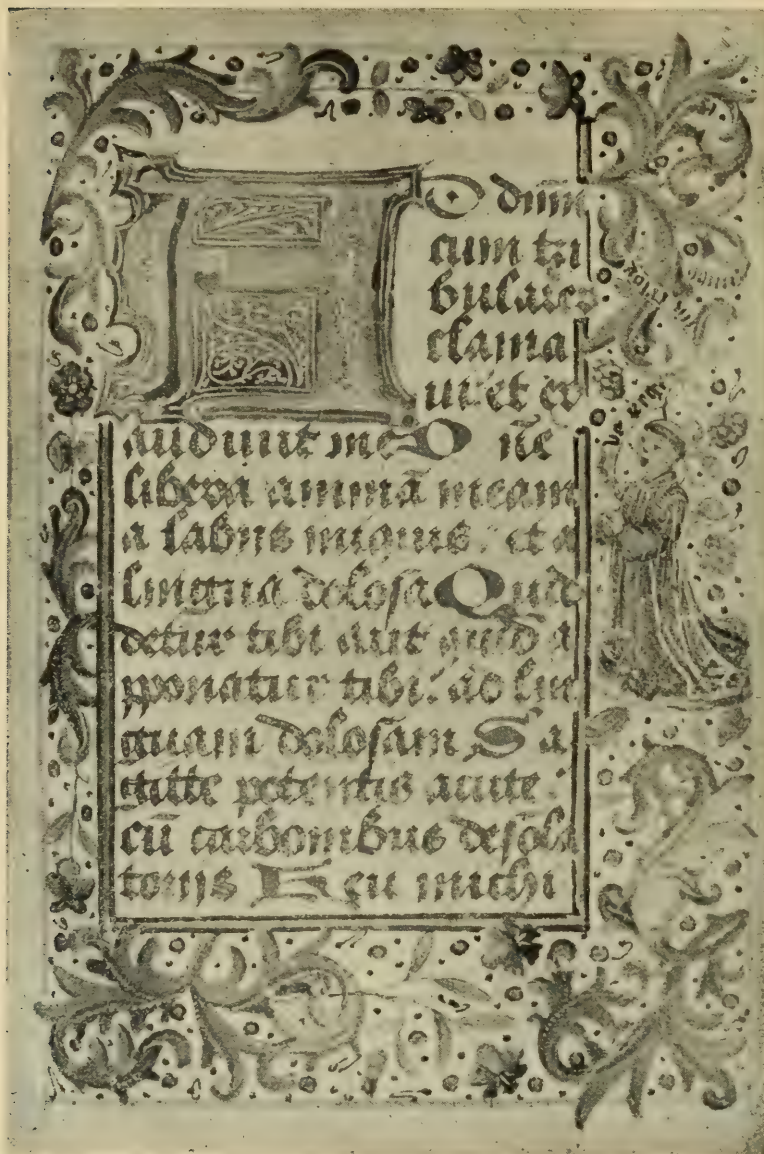 A D dnm
cum tri
bularer
clama
ui et ex
audiuit me D ne
libera animā meam
a labiis iniquis et a
lingua dolosa Quid
detur tibi aut quid a
pponatur tibi ad lin
guam dolosam Sa
gitte potentis acute
cū carbonibus desola
toriis Heu michi